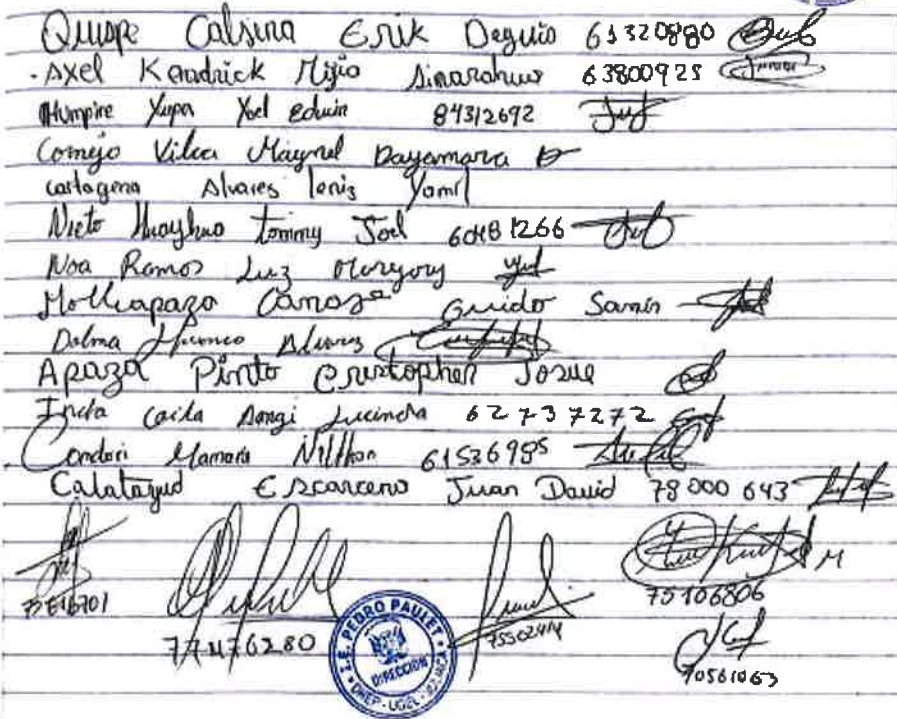 Quispe Calsina Erik Deguis 61320880
Axel Kendrick Mijio 63800925
Humpire Yupa Yoel Edwin 84312692
Cornejo Vilca Mayrel Dayamara
Cartagena Alvares Yamil
Nieto Huayhua Tommy Joel 60481266
Noa Ramos Luz Maryory
Molleapaza Canaza Guido Samir
Dalma Huanco Alvarez
Apaza Pinto Cristopher Josue
Incta Ccila Sangi Lucinda 62737272
Condori Mamani Nillthon 61536985
Calatayud Escarceno Juan David 78000643
77476280
75106806
70561063
I.E. PEDRO PAULET
DIRECCION
UGEL